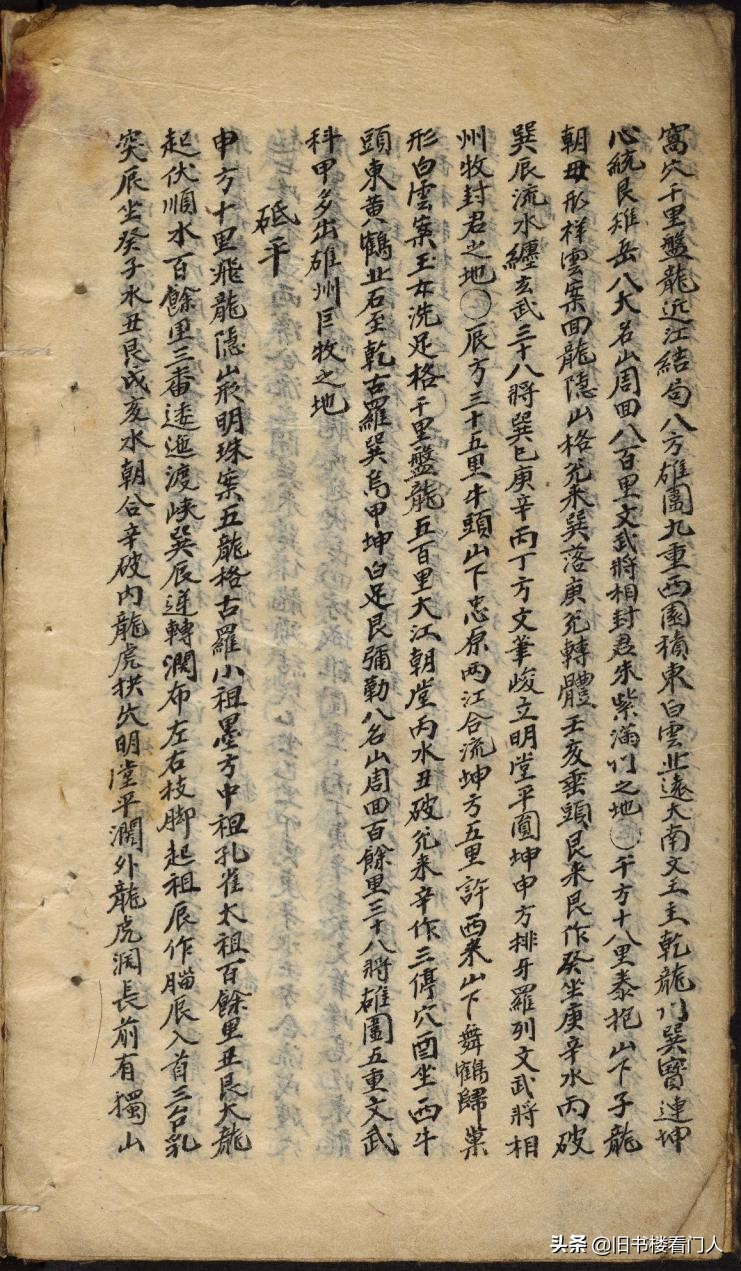 窩穴千里盤龍近江結局八方雄圍九重西園積東白雲北遠大南文王主乾龍門巽寶連坤
心統艮雉岳八大名山周回八百里文武將相封君朱紫滿門之地〇午方十八里泰抱山下子龍
朝母形祥雲案回龍隱山格兊来巽落庚兊轉體壬亥垂頭艮来艮作癸坐庚辛水丙破
巽辰流水纏玄武三十八將巽巳庚辛丙丁方文筆峻立明堂平圓坤申方排牙羅列文武將相
州牧封君之地〇辰方三十五里牛頭山下忠原两江合流坤方五里許西来山下舞鶴歸巢
形白雲案玉女洗足格千里盤龍五百里大江朝堂丙水丑破兊来辛作三停穴酉坐西牛
頭東黄鶴北石至乾古羅巽烏甲坤白足艮彌勒八名山周回百餘里三十八將雄圍五重文武
科甲多出雄州巨牧之地
砥平
申方十里飛龍隱山形明珠案五龍格古羅小祖墨方中祖孔雀太祖百餘里丑艮大龍
起伏順水百餘里三番逶迤渡峽巽辰逆轉濶布左右枝脚起祖辰作腦辰入首三台乳
突辰坐癸子水丑艮戌亥水朝合辛破内龍虎拱穴明堂平濶外龍虎濶長前有獨山
头条 @旧书楼看门人